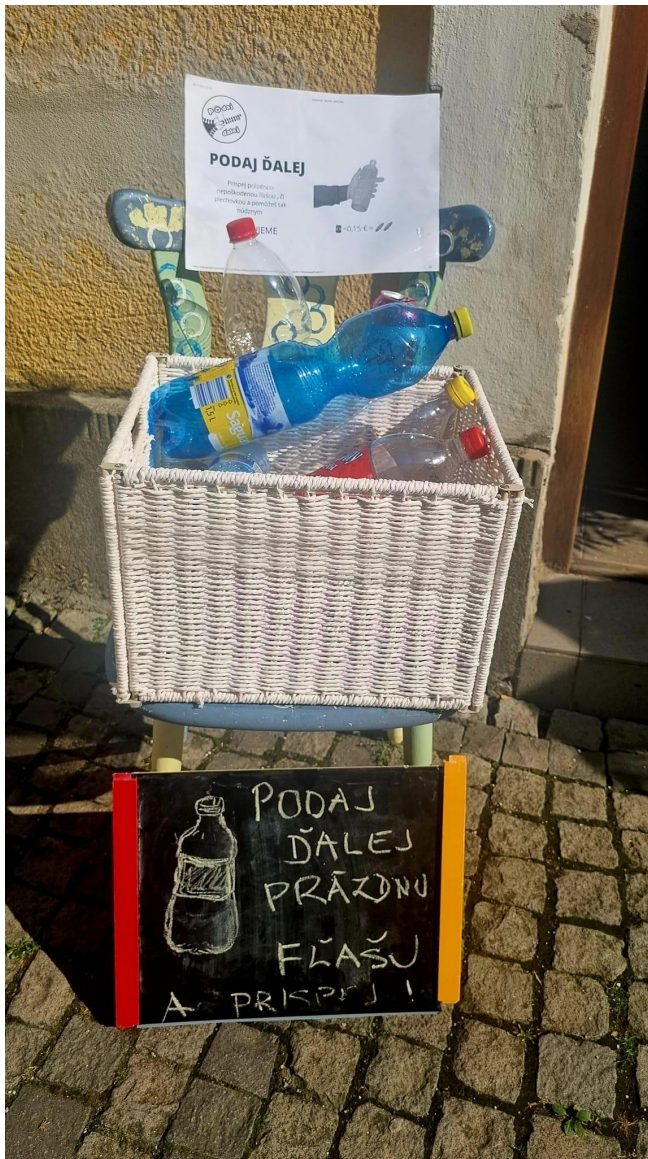 podaj
ďalej
PODAJ ĎALEJ
Prispej prázdnou
nepoškodenou fľašou, či
plechovkou a pomôžeš tak
núdznym
JEME
=0,15 € =
1,5 L
PODAJ
ĎALEJ
PRÁZDNU
FĽAŠU
A PRISPEJ!